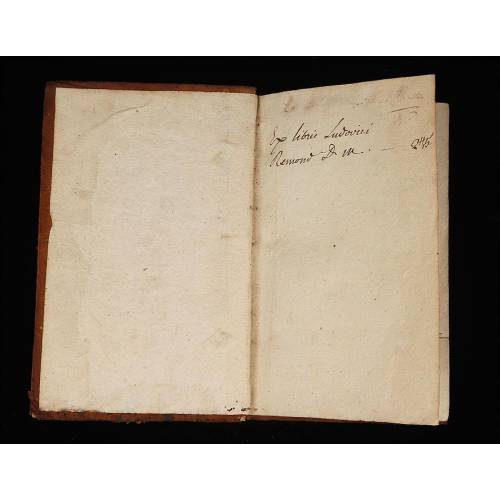 Ex libris Ludovici
Remond D. m.